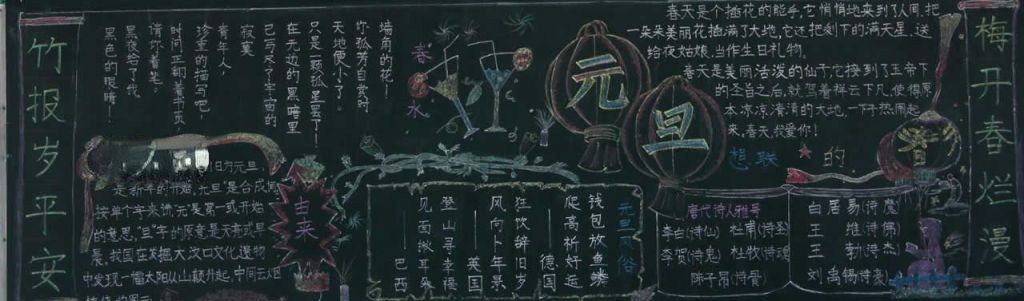 竹报岁平安
墙角的花！
你孤芳自赏时，
天地便小了。
只是一颗孤星罢了！
在无边的黑暗里
己写尽了宇宙的
寂寞
青年人，
珍重的描写吧，
时间正翻着书页，
请你着笔！
黑夜给了我
黑色的眼睛！
春
水
元旦
春天是个插花的能手，它悄悄地来到了人间，把
一朵朵美丽花插满了大地，它还把剩下的满天星，送
给夜姑娘，当作生日礼物。
春天是美丽活泼的仙子，它接到了玉帝下
的圣旨之后，就驾着祥云下凡，使得原
本凉凉清清的大地，一下子热闹起
来，春天，我爱你！
想联
的
梅开春烂漫
旧为元旦，
是新年的开始，元旦是合成词
按单个字来讲，元是第一或开始
的意思，旦字的原意是天亮或早
晨，我国在发掘大汶口文化遗物
中发现一幅太阳从山巅升起，中间云烟
白菜
元旦风俗
钱包放鱼鳞
爬高祈好运
——德国
狂饮辞旧岁
风向卜年景
——英国
登山寻幸福
见面揪耳朵
——巴西
唐代诗人雅号
李白(诗仙) 杜甫(诗圣)
李贺(诗鬼) 杜牧(诗魂)
陈子昂(诗骨)
白居易(诗魔)
王维(诗佛)
王勃(诗杰)
刘禹锡(诗豪)